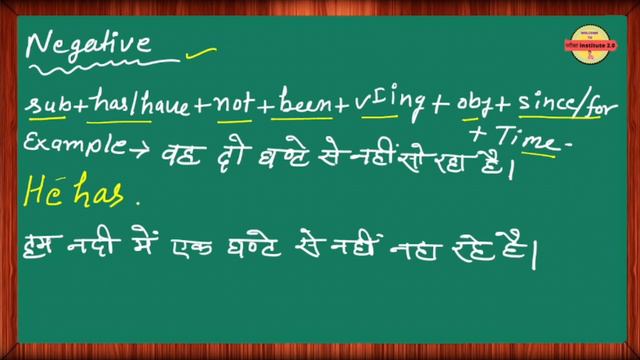 Negative
WELCOME
TO
परीक्षा institute 2.0
sub + has/have + not + been + vIing + obj + since/for
+ Time.
Example → वह दो घण्टे से नहीं सो रहा है।
He has.
हम नदी में एक घण्टे से नहीं नहा रहे है।